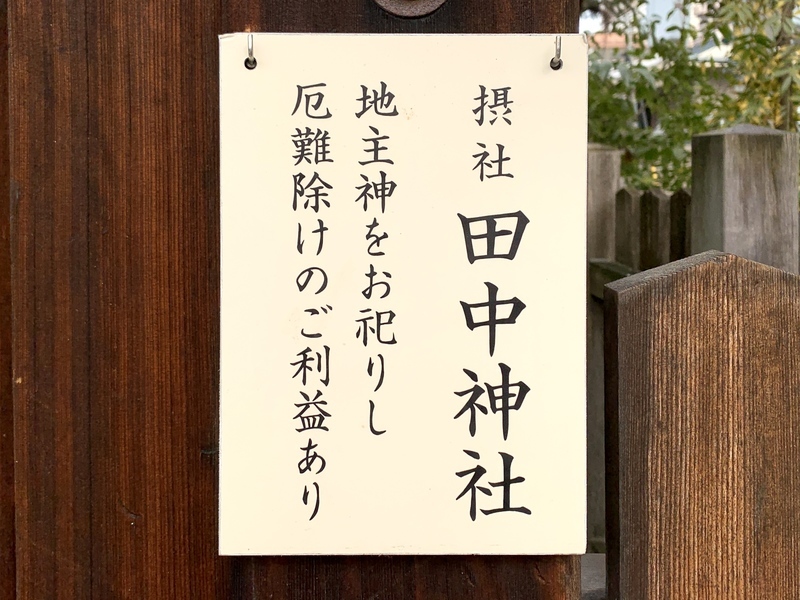 摂社 田中神社
地主神をお祀りし
厄難除けのご利益あり